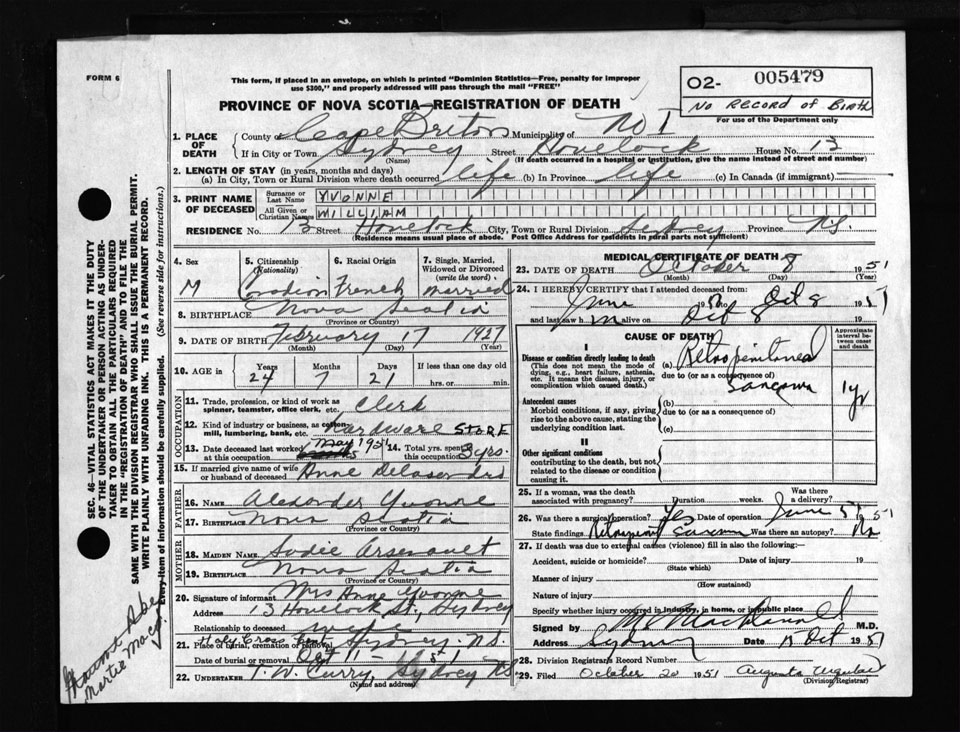 FORM 6
This form, if placed in an envelope, on which is printed "Dominion Statistics—Free, penalty for improper
use $300," and properly addressed will pass through the mail "FREE"
PROVINCE OF NOVA SCOTIA—REGISTRATION OF DEATH
O2- 005479
NO RECORD OF BIRTH
For use of the Department only
1. PLACE OF DEATH
County of Cape Breton Municipality of No 1
If in City or Town Sydney Street Havelock House No. 13
(Name) (If death occurred in a hospital or institution, give the name instead of street and number)
2. LENGTH OF STAY (in years, months and days)
(a) In City, Town or Rural Division where death occurred life (b) In Province life (c) In Canada (if immigrant)
3. PRINT NAME OF DECEASED
Surname or Last Name YVONNE
All Given or Christian Names WILLIAM
RESIDENCE No. 13 Street Havelock City, Town or Rural Division Sydney Province N.S.
(Residence means usual place of abode. Post Office Address for residents in rural parts not sufficient)
4. Sex M
5. Citizenship (Nationality) Canadian
6. Racial Origin French
7. Single, Married, Widowed or Divorced (write the word) Married
8. BIRTHPLACE Nova Scotia
(Province or Country)
9. DATE OF BIRTH February 17 1927
(Month) (Day) (Year)
10. AGE in Years 24 Months 7 Days 21 If less than one day old hrs. or min.
OCCUPATION
11. Trade, profession, or kind of work as spinner, teamster, office clerk, etc. Clerk
12. Kind of industry or business, as cotton-mill, lumbering, bank, etc. Hardware STORE
13. Date deceased last worked at this occupation May 1951
14. Total yrs. spent in this occupation 3 yrs.
15. If married give name of wife or husband of deceased Anne
FATHER
16. NAME Alexander Yvonne
17. BIRTHPLACE Nova Scotia
(Province or Country)
MOTHER
18. MAIDEN NAME Sadie Arsenault
19. BIRTHPLACE Nova Scotia
(Province or Country)
20. Signature of informant Mrs Anne Yvonne
Address 13 Havelock St., Sydney
Relationship to deceased wife
21. Place of burial, cremation or removal Holy Cross Cent. Sydney N.S.
Date of burial or removal Oct 11 - 1951
22. UNDERTAKER T. W. Curry, Sydney N.S.
(Name and address)
MEDICAL CERTIFICATE OF DEATH
23. DATE OF DEATH October 8 1951
(Month) (Day) (Year)
24. I HEREBY CERTIFY that I attended deceased from:
June 1951 to Oct 8 1951
and last saw him alive on Oct 8 19
CAUSE OF DEATH
Approximate interval between onset and death
I
Disease or condition directly leading to death
(This does not mean the mode of dying, e.g., heart failure, asthenia, etc. It means the disease, injury, or complication which caused death.)
(a) Retroperitoneal
due to (or as a consequence of)
Sarcoma 1 yr
Antecedent causes
Morbid conditions, if any, giving rise to the above cause, stating the underlying condition last.
(b)
due to (or as a consequence of)
(c)
II
Other significant conditions
contributing to the death, but not related to the disease or condition causing it.
25. If a woman, was the death associated with pregnancy? Duration weeks. Was there a delivery?
26. Was there a surgical operation? Yes Date of operation June 51 1951
State findings Retroperit sarcoma Was there an autopsy? No
27. If death was due to external causes (violence) fill in also the following:—
Accident, suicide or homicide? Date of injury 19
(State which)
Manner of injury
(How sustained)
Nature of injury
Specify whether injury occurred in industry, in home, or in public place
Signed by M.D.
Address Sydney Date Oct 1951
28. Division Registrar's Record Number
29. Filed October 20 1951 Augusta
(Division Registrar)
SEC. 46—VITAL STATISTICS ACT MAKES IT THE DUTY
OF THE UNDERTAKER OR PERSON ACTING AS UNDER-
TAKER TO OBTAIN ALL THE PARTICULARS REQUIRED
IN THE "REGISTRATION OF DEATH" AND TO FILE THE
SAME WITH THE DIVISION REGISTRAR WHO SHALL ISSUE THE BURIAL PERMIT.
WRITE PLAINLY WITH UNFADING INK. THIS IS A PERMANENT RECORD.
Every item of information should be carefully supplied. (See reverse side for instructions.)